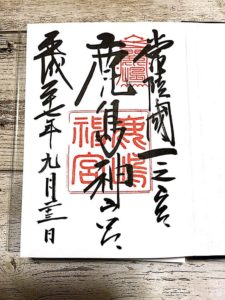 常陸國一之宮
鹿島神宮
鹿島神宮
平成二十七年九月二十三日